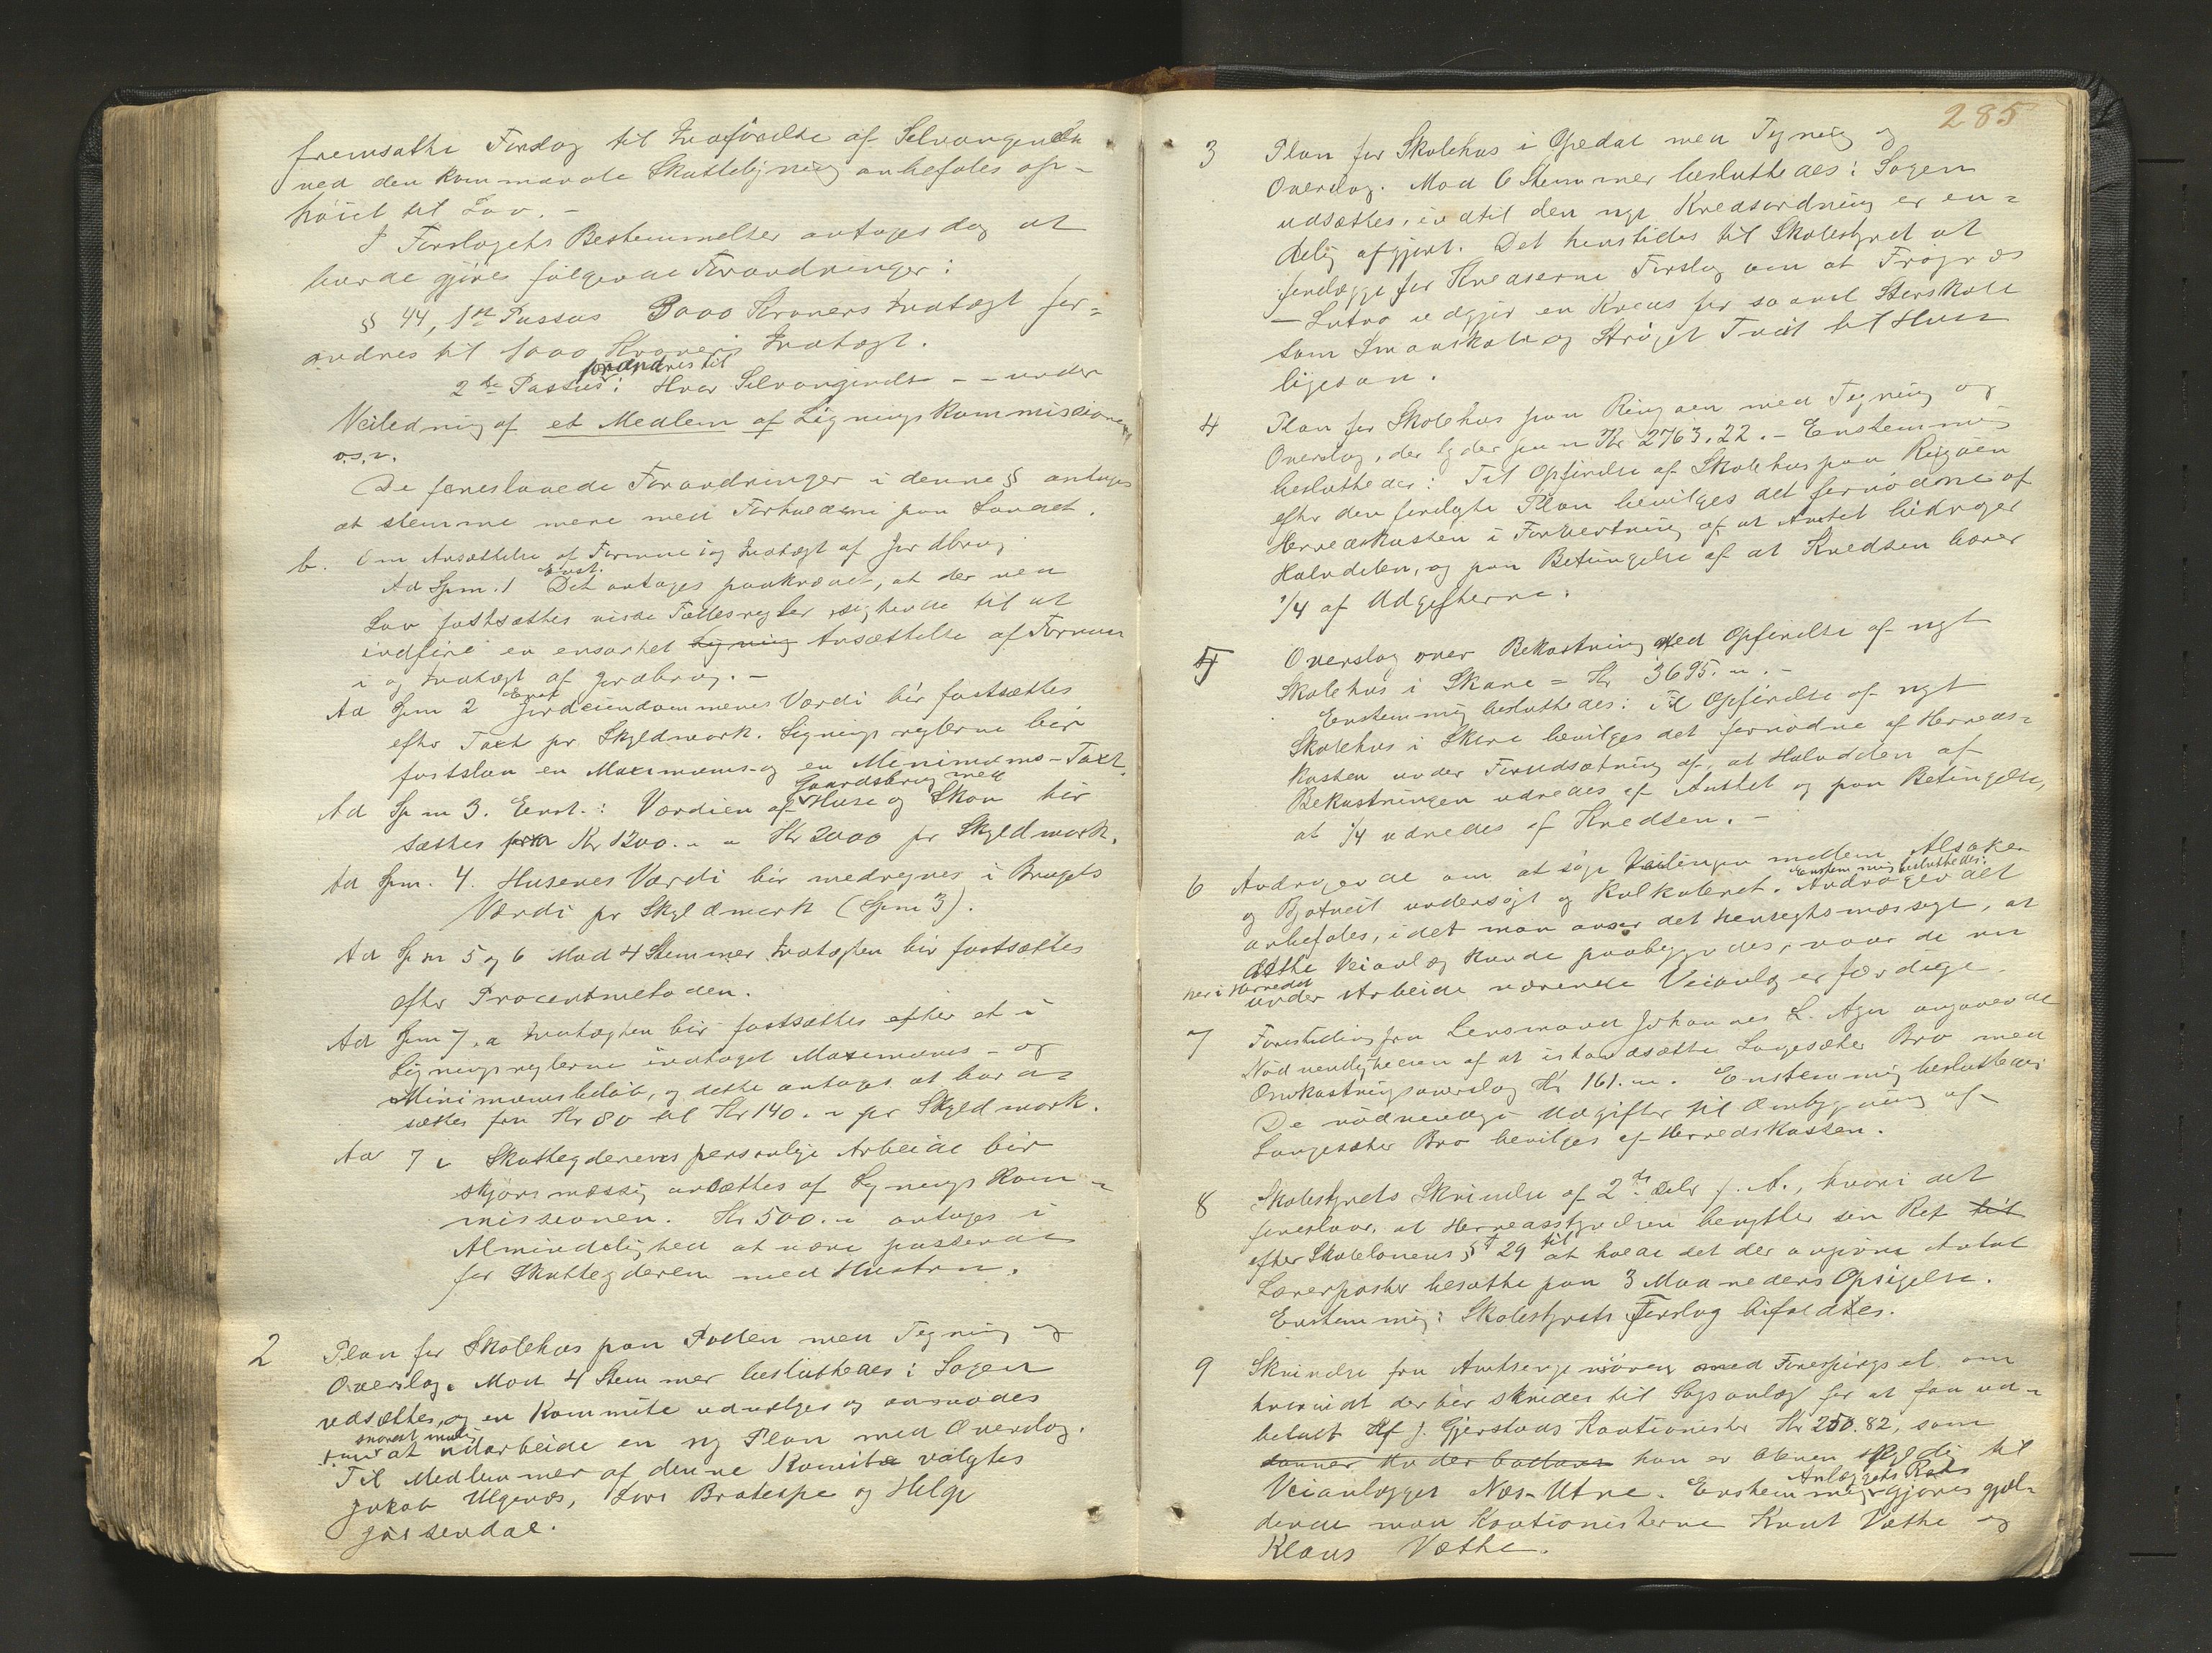 fremsatte Forslag til Indførelse af Selvangivelse
ved den kommunale Skatteligning anbefales op-
høiet til Lov. -
I Forslagets Bestemmelser antages dog at
burde gjøres følgende Forandringer:
§ 44, 1ste Passus 3000 Kroners Indtægt for-
andres til 1000 Kroners Indtægt.
forandres til
2den Passus: Hver Selvangivelse - - under
Veiledning af et Medlem af Ligningskommissionen
o.s.v.
De foreslaaede Forandringer i denne § antages
at stemme mere med Forholdene paa Landet.
b. Om Ansættelse af Formue i og Indtægt af Jordbrug
Enst.
Ad Spm. 1 Det antages paakrævet, at der ved
Lov fastsættes visse Fællesregler, sigtende til at
indføre en ensartet Ligning Ansættelse af Formue
i og Indtægt af Jordbrug. -
Enst
Ad Spm 2 Jordeiendommenes Værdi bør fastsættes
efter Taxt pr. Skyldmark. Ligningsreglerne bør
fastslaa en Maximums- og en Minimums-Taxt.
Gaardsbrug med
Ad Spm 3. Enst.: Værdien af Huse og Skov bør
sættes fra Kr 1200. - - Kr 2000 pr Skyldmark.
Ad Spm. 4. Husenes Værdi bør medregnes i Brugets
Værdi pr Skyldmark (Spm 3).
Ad Spm 5 og 6 Mod 4 Stemmer Indtægten bør fastsættes
efter Procentmetoden.
Ad Spm 7. a Indtægten bør fastsættes efter et i
Ligningsreglerne indtaget Maximums- og
Minimumsbeløb, og dette antages at burde
sættes fra Kr 80 til Kr 140. - pr Skyldmark.
Ad 7 c Skatteyderens personlige Arbeide bør
skjønsmæssig ansættes af Lignings Kom-
missionen. Kr 500. - antages i
Almindelighed at være passende
for Skatteyderen med Hustru.
2 Plan for Skolehus paa Pollen med Tegning og
Overslag. Mod 4 Stemmer besluttedes: Sagen
udsættes, og en Kommite udvælges og anmodes
snarest mulig
om at udarbeide en ny Plan med Overslag.
Til Medlemmer af denne Komite valgtes
Jakob Ulgenes, Lars Bratespe og Helge
Jaasendal.
285
3 Plan for Skolehus i Opedal med Tegning og
Overslag. Mod 6 Stemmer besluttedes: Sagen
udsættes, indtil den nye Kredsordning er en-
delig afgjort. Det henstilles til Skolestyret at
forelægge for Kredserne Forslag om at Frøynes
- Lutro udgjør en Kreds for saavel Storskole
som Smaaskole og Strøget Tveit til Hus
ligesaa.
4 Plan for Skolehus paa Ringøen med Tegning og
Overslag, der lyder paa - Kr 2763.22. - Enstemmig
besluttedes: Til Opførelse af Skolehus paa Ringøen
efter den forelagte Plan bevilges det fornødne af
Herredskassen i Forventning af at Amtet bidrager
Halvdelen, og paa Betingelse af at Kredsen bærer
1/4 af Udgifterne.
5 Overslag over Bekostning ved Opførelse af nyt
Skolehus i Skare = Kr 3695. -. -
Enstemmig besluttedes: Til Opførelse af nyt
Skolehus i Skare bevilges det fornødne af Herreds-
kassen under Forudsætning af, at Halvdelen af
Bekostningen udredes af Amtet og paa Betingelse,
at 1/4 udredes af Kredsen. -
6 Andragende om at søge Veilinjen mellem Alsaker
Enstemmig besluttedes:
og Bjotveit undersøgt og kalkuleret. Andragendet
anbefales, idet man anser det hensigtsmæssigt, at
dette Veianlæg kunde paabegyndes, naar de nu
her i Herredet
under Arbeide værende Veianlæg er færdige.
7 Forestilling fra Lensmand Johannes L. Aga angaaende
Nødvendigheden af at istandsætte Langesæter Bro med
Omkostningsoverslag Kr 161. -. Enstemmig besluttedes:
De nødvendige Udgifter til Ombygning af
Langesæter Bro bevilges af Herredskassen.
8 Skolestyrets Skrivelse af 2den Debr f. A., hvori det
foreslaar, at Herredsstyrelsen benytter sin Ret til
til
efter Skolelovens § 29 at holde det der angivne Antal
Lærerposter besatte paa 3 Maaneders Opsigelse.
Enstemmig: Skolestyrets Forslag bifaldtes.
9 Skrivelse fra Amtsingeniøren med Forespørgsel om
hvorvidt der bør skrides til Sagsanlæg for at faa ud-
betalt af J. Gjerstads Kautionister Kr 250.82, som
han er bleven skyldig til
Anlæggets Ret
Veianlægget Næs-Utne. Enstemmig gjøres gjæl-
dende mod Kautionisterne Knut Væthe og
Klaus Væthe.